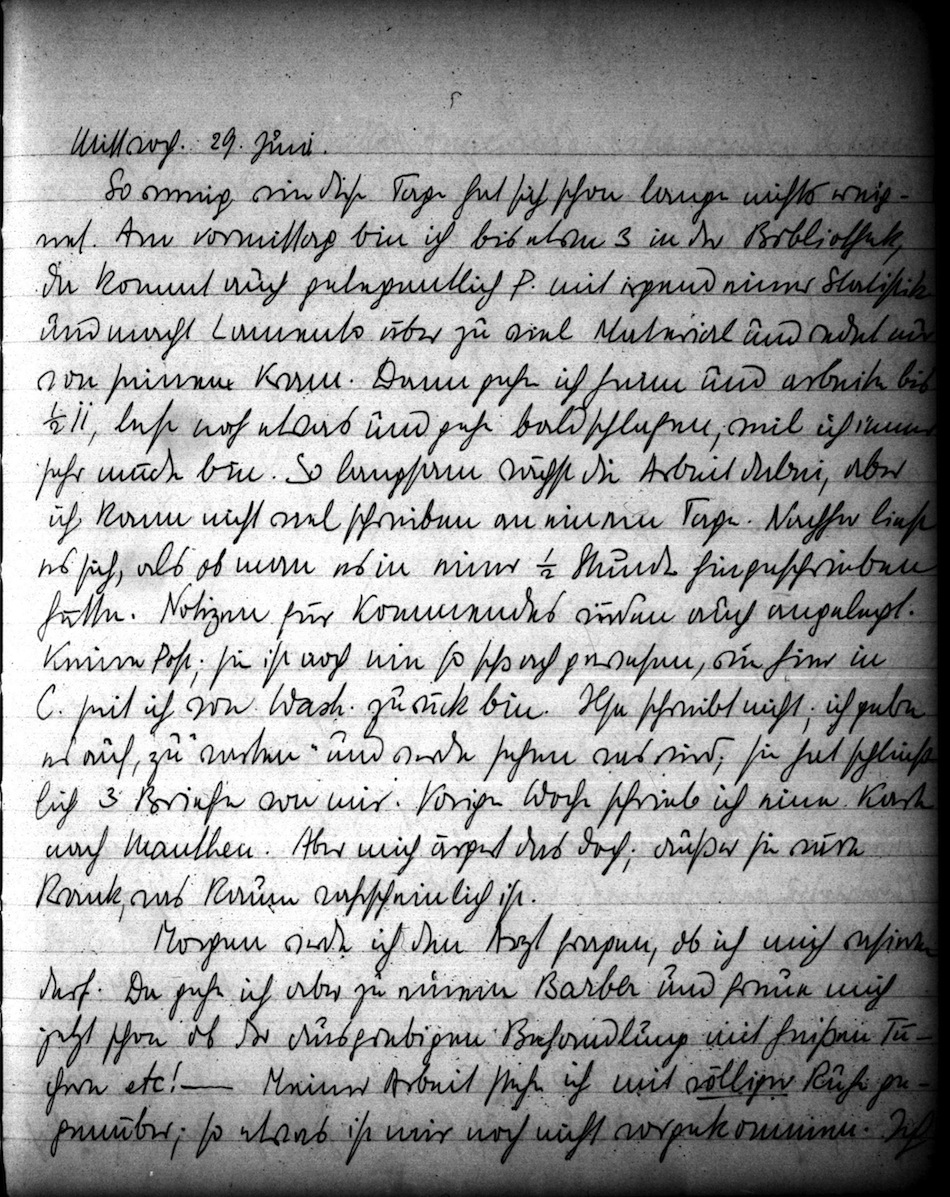 5
Mittwoch. 29. Juni.
So wenig wie diese Tage hat sich schon lange nichts ereig-
net. Am vormittag bin ich bis etwa 3 in der Bibliothek,
da kommt auch gelegentlich P. mit irgend einer Statistik
und macht Lamento über zu viel Material und redet nur
von seinem Kram. Dann gehe ich heim und arbeite bis
½ 11, lese noch etwas und gehe bald schlafen, weil ich immer
sehr müde bin. So langsam wächst die Arbeit dabei, aber
ich kann nicht viel schreiben an einem Tage. Nachher liest
es sich, als ob man es in einer ½ Stunde hingeschrieben
hätte. Notizen für Kommendes würden auch angelegt.
Keine Post; sie ist noch nie so schwach gewesen, wie hier in
C. seit ich von Wash. zurück bin. Ilse schreibt nicht; ich gebe
es auf, zu "warten" und werde sehen was wird; sie hat schließ-
lich 3 Briefe von mir. Vorige Woche schrieb ich eine Karte
nach Mauthen. Aber mich ärgert das doch; außer sie wäre
krank, was kaum wahrscheinlich ist.
Morgen werde ich den Arzt fragen, ob ich mich rasieren
darf. Da gehe ich aber zu einem Barber und freue mich
jetzt schon ob der ausgiebigen Behandlung mit heißen Tü-
chern etc! — Meiner Arbeit stehe ich mit völliger Ruhe ge-
genüber; so etwas ist mir noch nicht vorgekommen. Ich